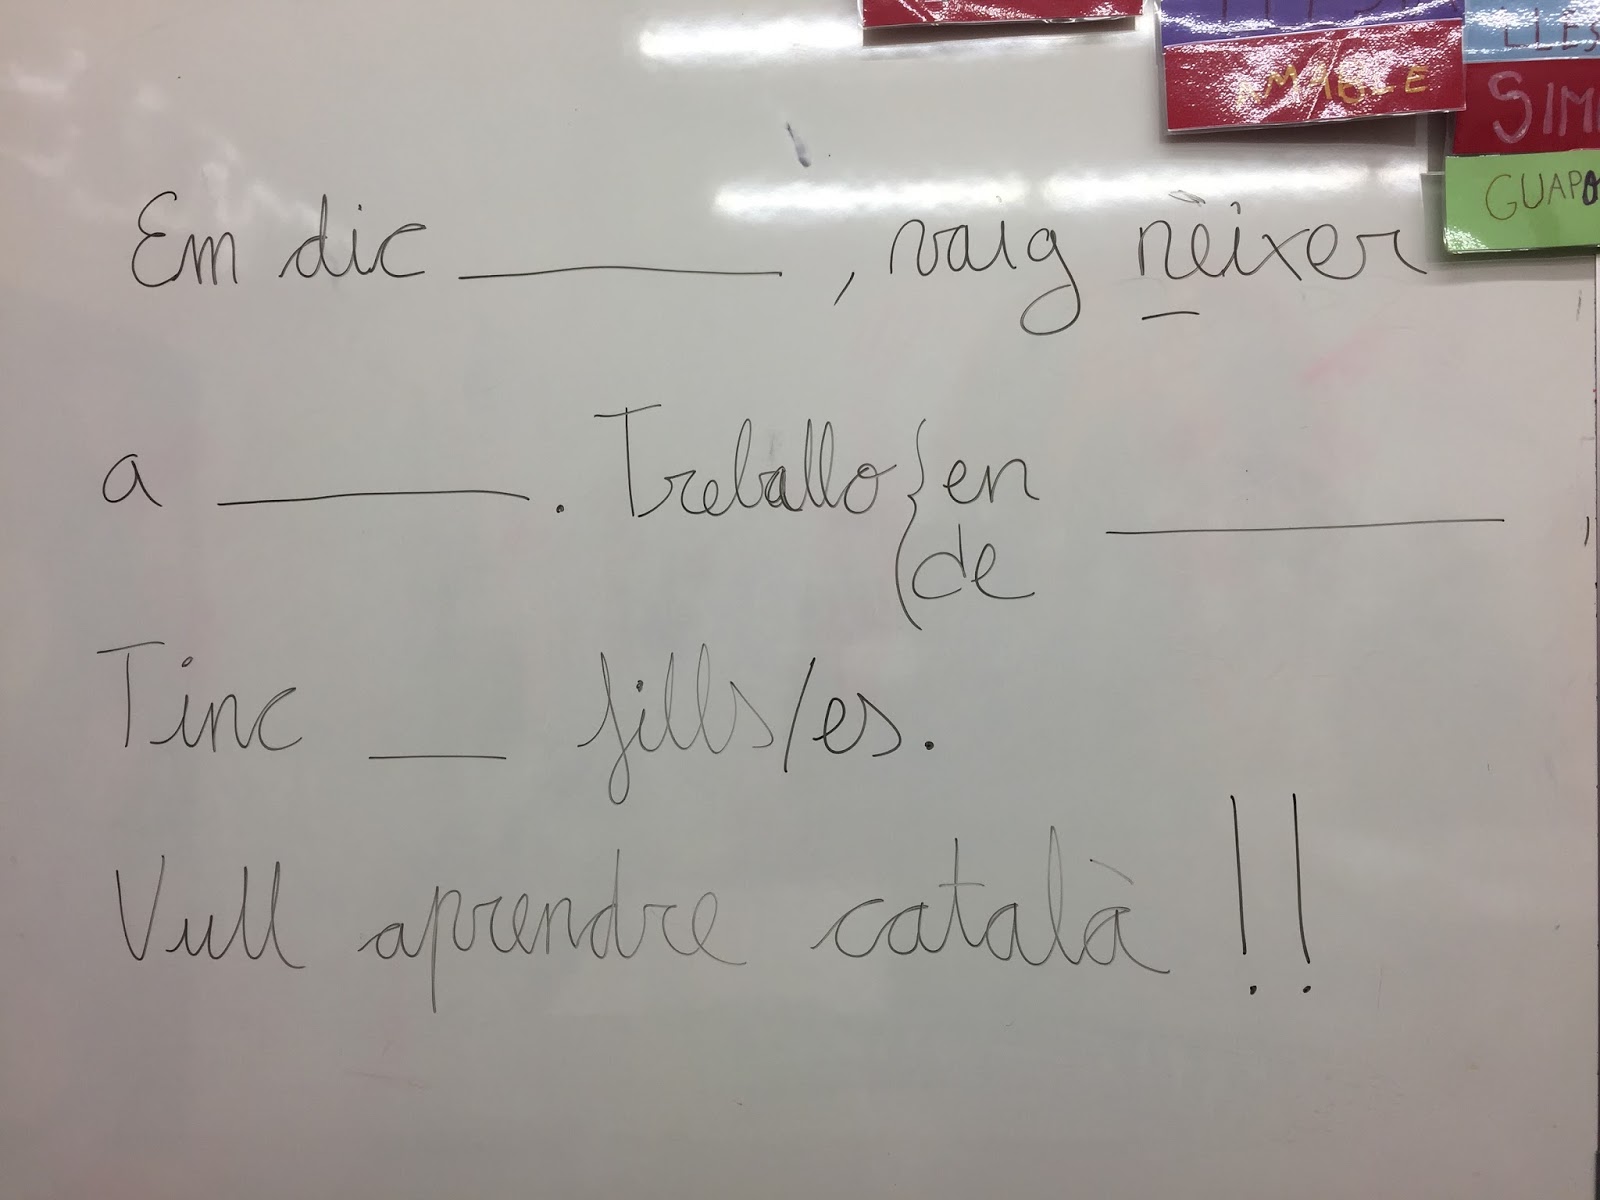 AMABLE
GUAPO
Em dic ________ , vaig nèixer
a ________ . Treballo { en ________ ,
de
Tinc ___ fills/es.
Vull aprendre català !!